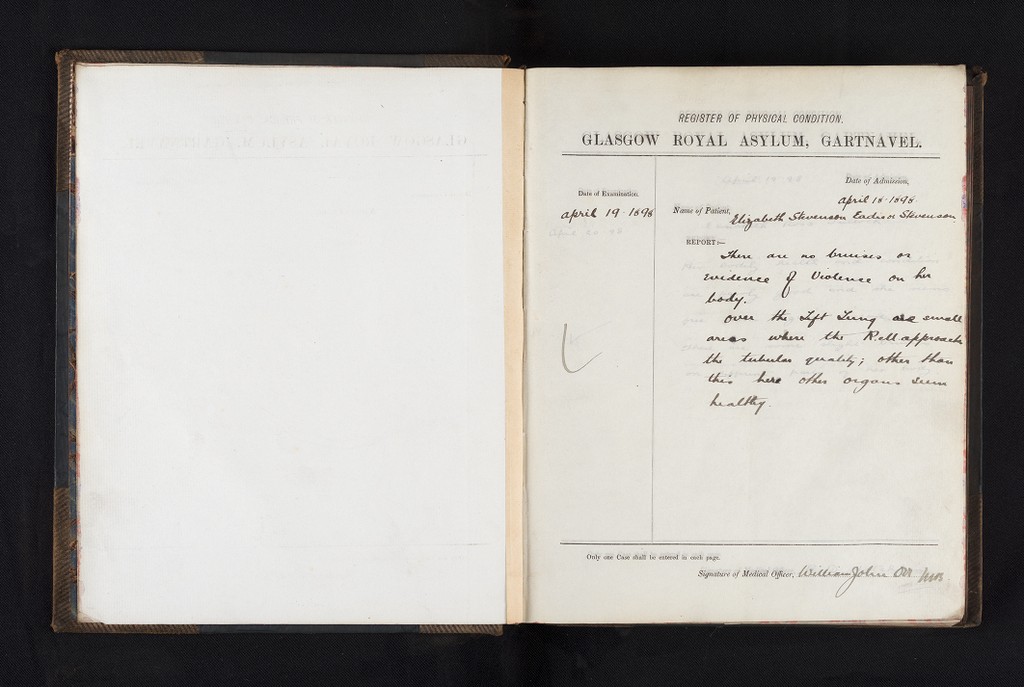 REGISTER OF PHYSICAL CONDITION.
GLASGOW ROYAL ASYLUM, GARTNAVEL.
Date of Examination.
April 19 - 1898
Date of Admission,
April 18 - 1898.
Name of Patient, Elizabeth Stevenson Eadie or Stevenson.
REPORT:—
There are no bruises or
evidence of Violence on her
body.
Over the Left Lung are small
areas where the R.M approach
the tubular quality; other than
this here other organs seem
healthy.
Only one Case shall be entered in each page.
Signature of Medical Officer, William John Orr MB